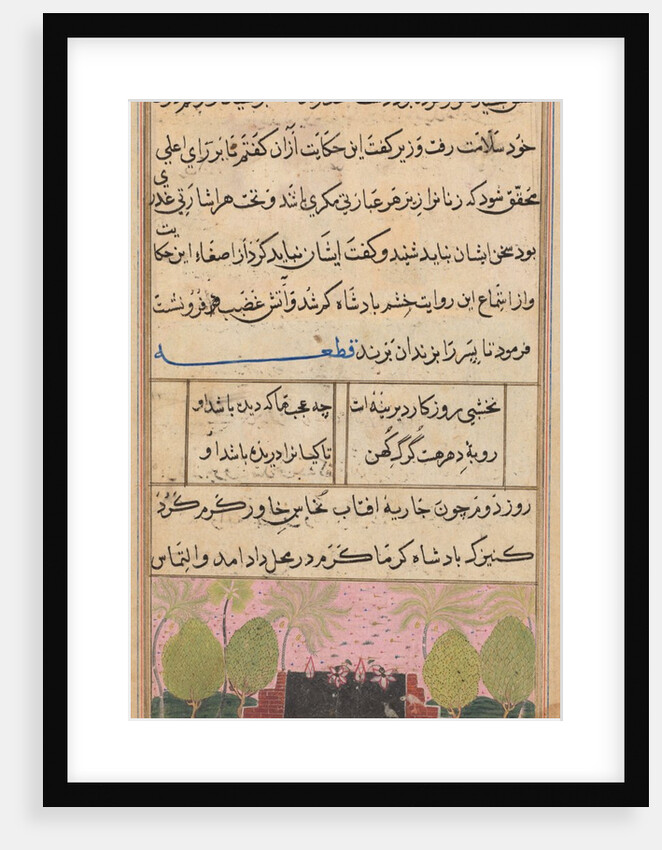 خود سلامت رفت وزیر کفت این حکایت ازان کفتم تا بر رای اعلی
محقق شود که زنانرا زیر هر عبارتی مکری باشد و تحت هر اشارتی غدری
بود سخن ایشان نباید شنید و کفت ایشان نباید کرد از اصغاء این حکایت
و از استماع این روایت خشم بادشاه کم شد و آتش غضب هم فرو نشست
فرمود تا پسر را بزندان بزند قطعه
نخشبی روز کار دیرینه است چه عجبها که دیده باشد او
روبهٔ دهر هست گرگ کهن تا کیانرا دریده باشد او
روز دوم چون جاریهٔ افتاب نخاس خاور کرم کرد
کنیزک بادشاه کرما کرم در محل داد امد و التماس